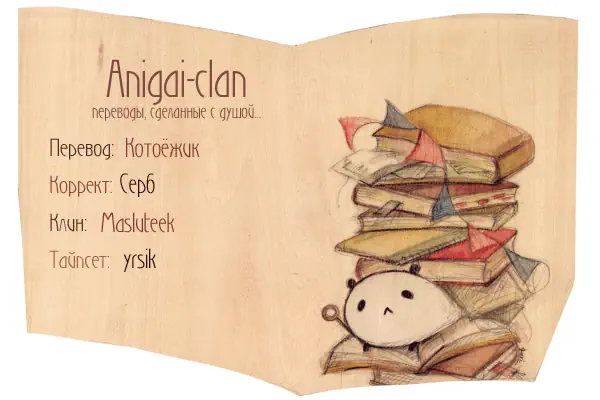 Anigai-clan
переводы, сделанные с душой...
Перевод: Котоёжик
Коррект: Серб
Клин: Masluteek
Тайпсет: yrsik